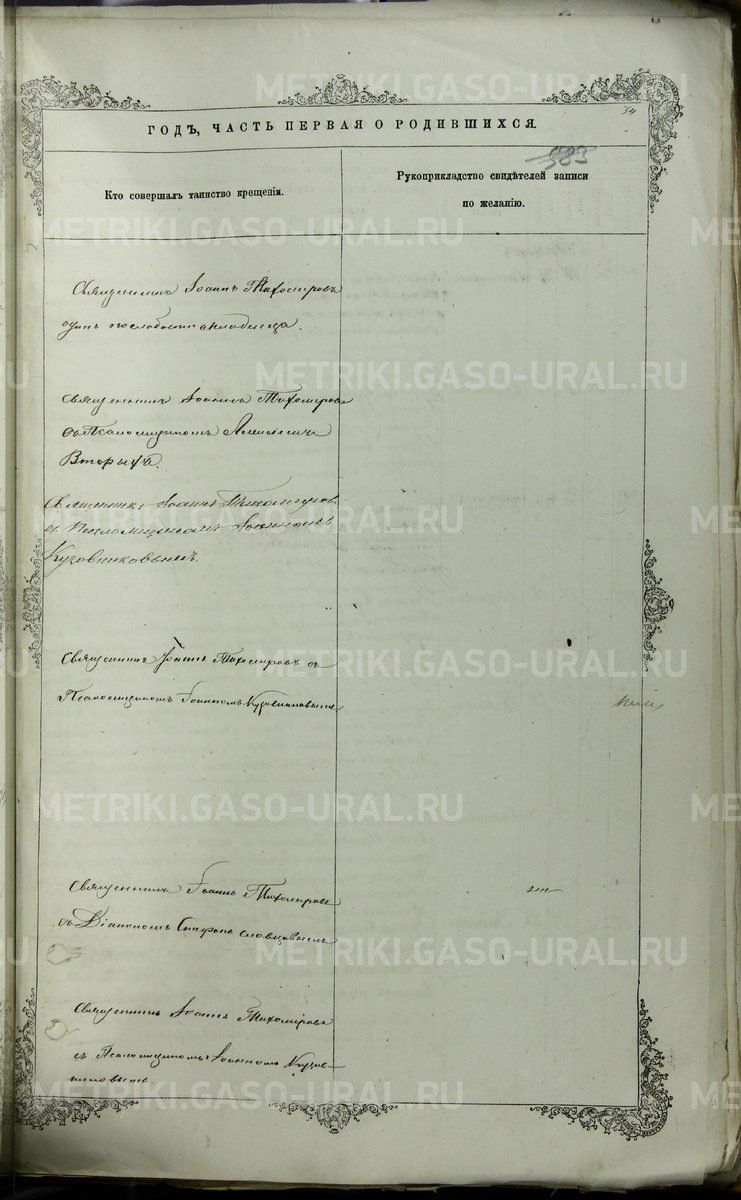 METRIKI.GASO-URAL.RU METRIKI.GASO-URAL.RU
ГОДЪ, ЧАСТЬ ПЕРВАЯ О РОДИВШИХСЯ.
583
Кто совершалъ таинство крещенія.
Рукоприкладство свидѣтелей записи
по желанію.
Священникъ Іоаннъ Тихомировъ
одинъ по слабости младенца.
священникъ Іоаннъ Тихомировъ
съ Псаломщикомъ Алексіемъ
Вторыхъ.
Священникъ Іоаннъ Тихомировъ
съ Псаломщикомъ Іоанномъ
Кузовниковымъ.
Священникъ Іоаннъ Тихомировъ съ
Псаломщикомъ Іоанномъ Кузовниковымъ
Священникъ Іоаннъ Тихомировъ
съ Діакономъ Словцовымъ
Священникъ Іоаннъ Тихомировъ
съ Псаломщикомъ Іоанномъ Кузов-
никовымъ.